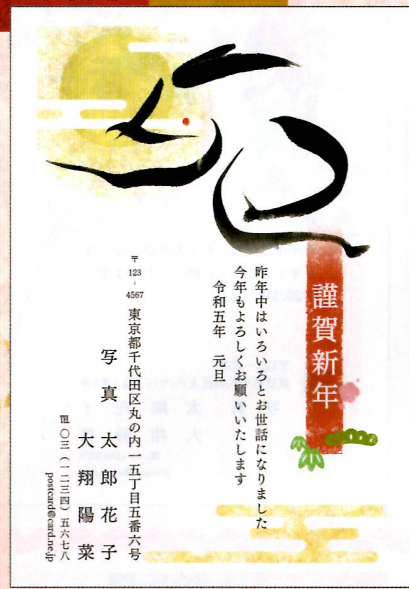 謹賀新年
昨年中はいろいろとお世話になりました
今年もよろしくお願いいたします
令和五年 元旦
〒123-4567 東京都千代田区丸の内一五丁目五番六号
写真 太郎 花子
大翔 陽菜
☎〇三(一二三四)五六七八
postcard@card.ne.jp